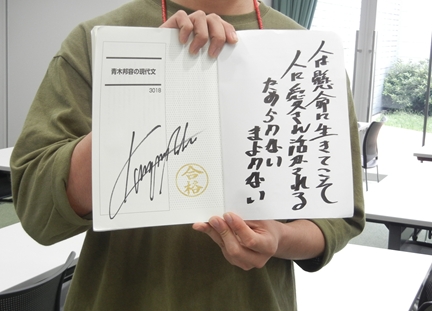 青木邦容の現代文
3018
合格
人は懸命に生きてこそ
人に愛され活かされる
ためらわない
まよわない